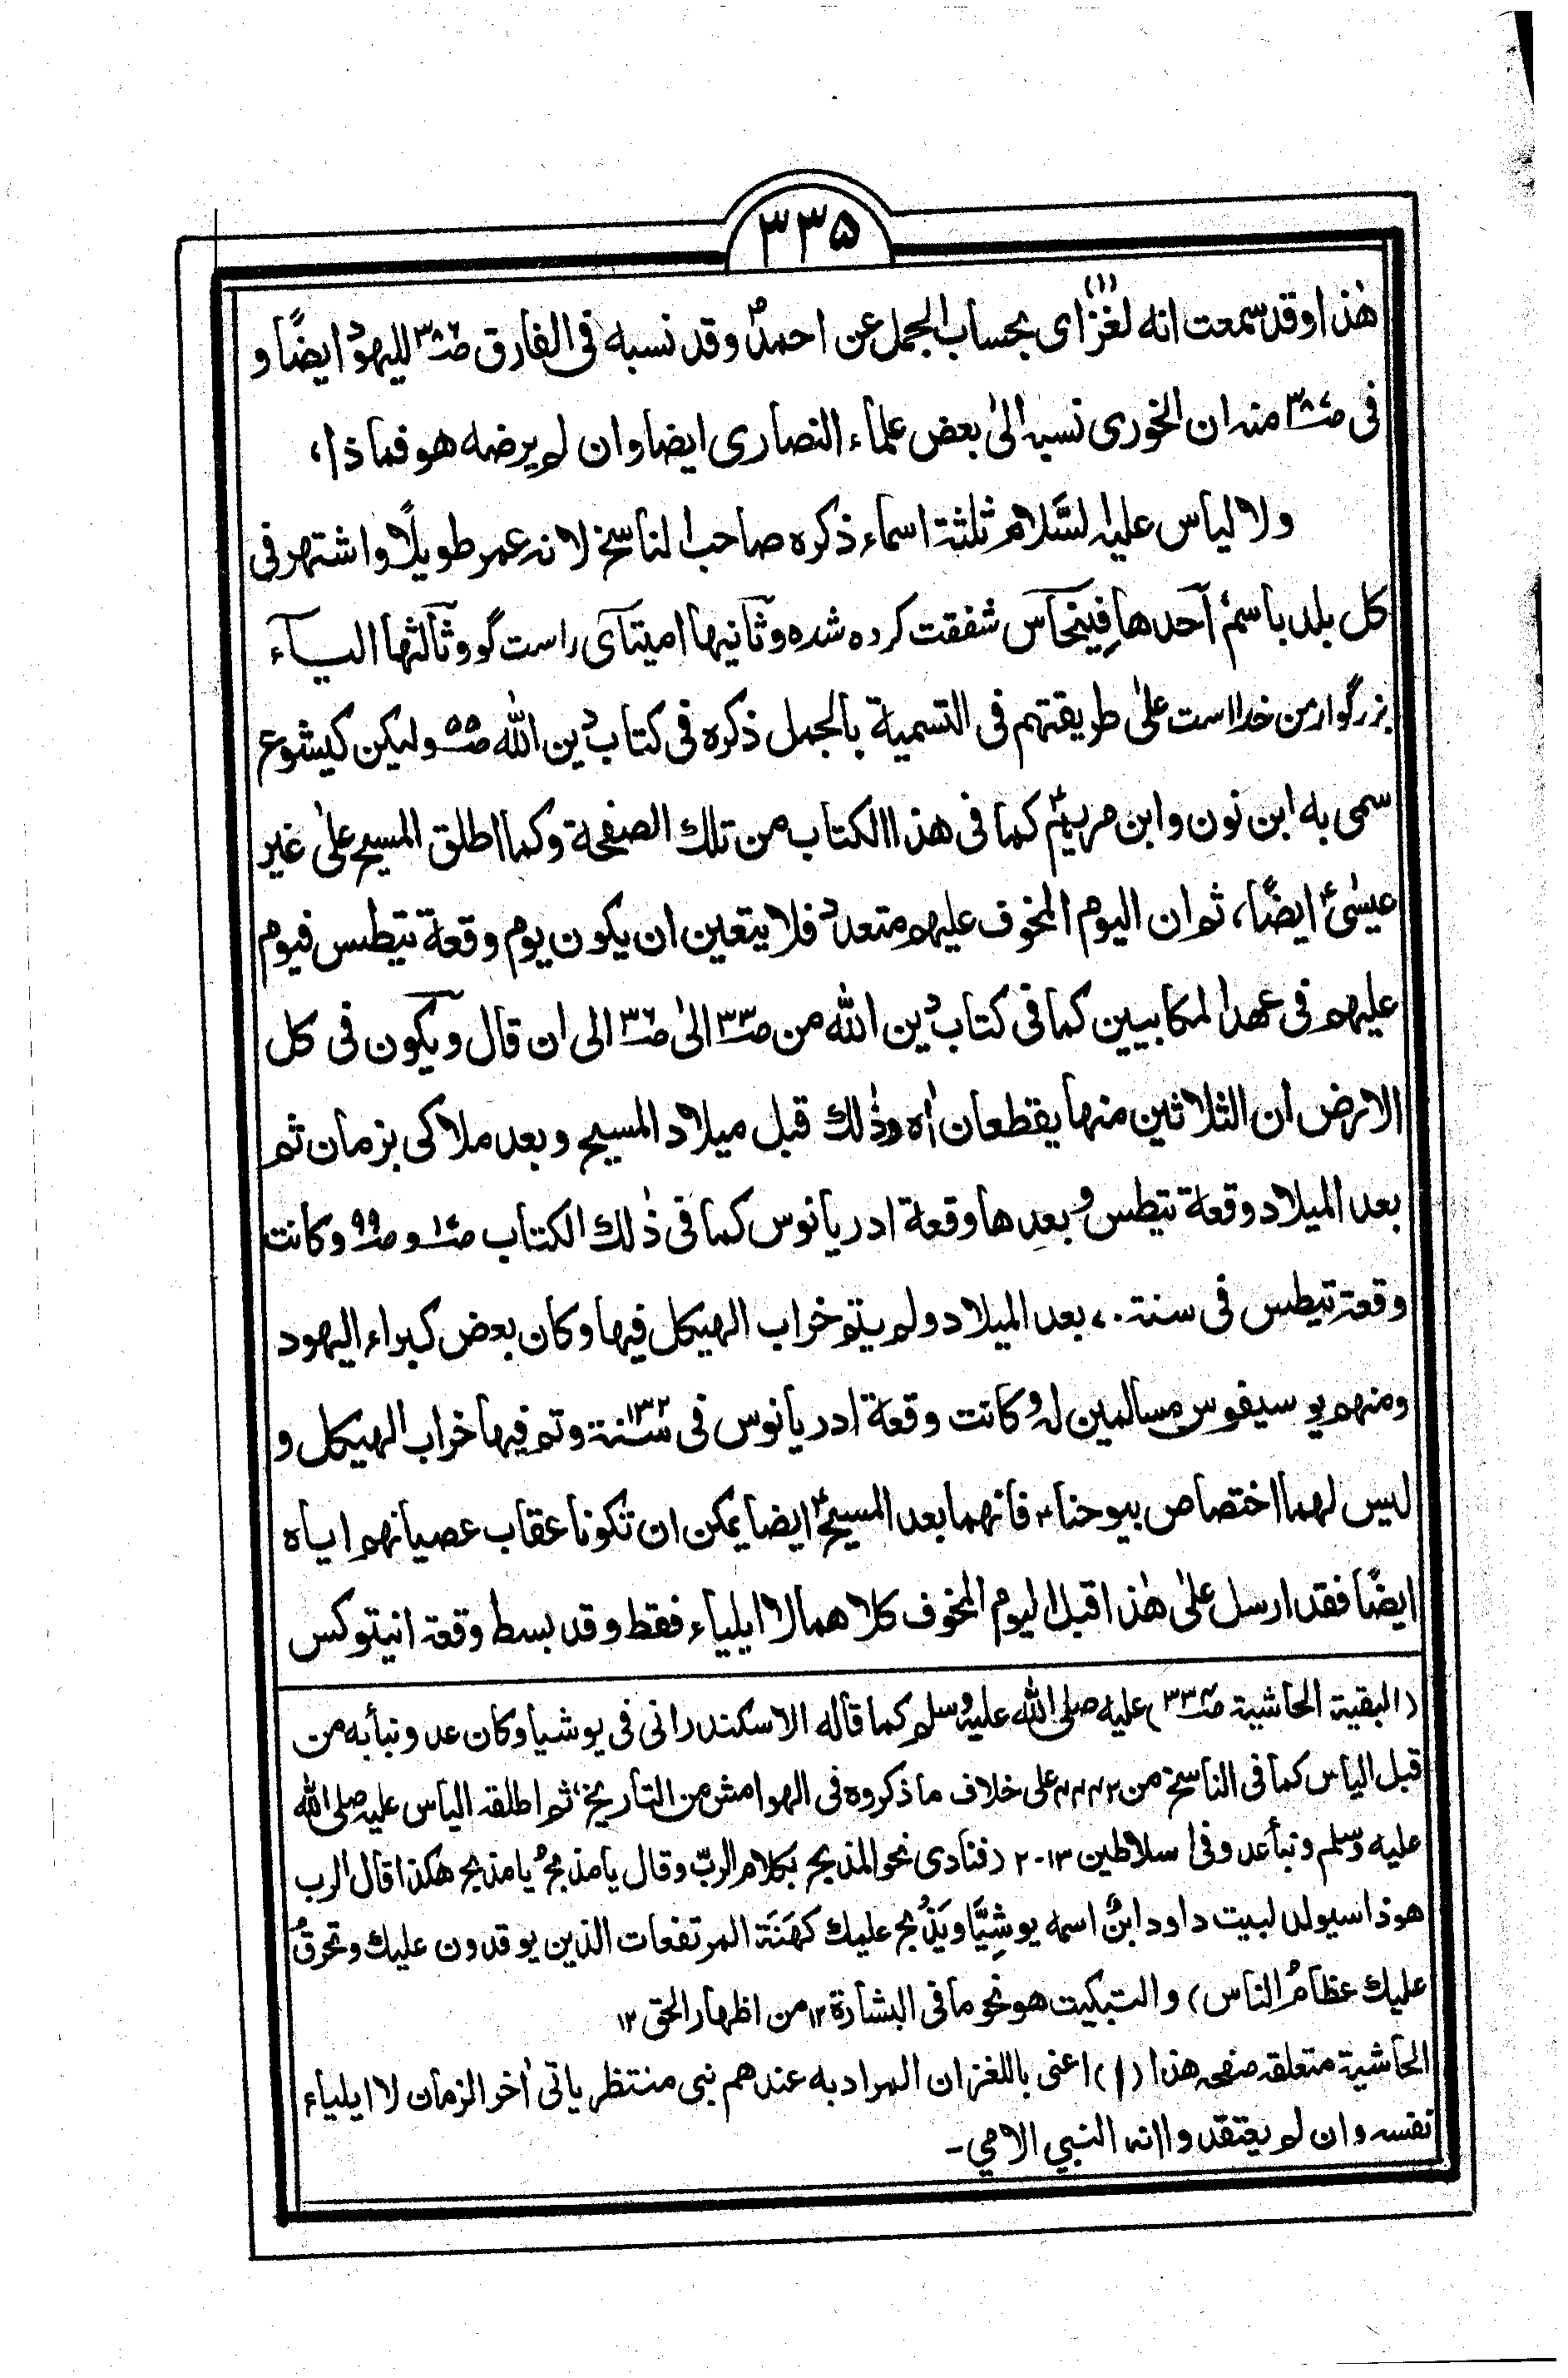 ۳۳۵
هٰذا وقد سمعت انه لغز(۱) اى بحساب الجمل عن احمدؐ وقد نسبه فى الفارق ص۳۸۶ لليهود ايضًا و
فى ص۳۸۷ منه ان الخورى نسبه الىٰ بعض علماء النصارى ايضا وان لم يرضه هو فماذا،
ولالياس عليه السَّلام ثلثة اسماء ذكره صاحب الناسخ لانه عمر طويلًا واشتهر فى
كل بلد باسم احدها فِينحاس شفقت كرده شده وثانيها اميتاى راست گو وثالثها الياء
بزرگوار من خدا است علىٰ طريقتهم فى التسمية بالجمل ذكره فى كتاب دين الله ص۵۵ وليكن كيشوع
سمى به ابن نون وابن مريمؑ كما فى هذا الكتاب من تلك الصفحة وكما اطلق المسيح علىٰ غير
عيسىٰؑ ايضًا، ثم ان اليوم المخوف عليهم متعدد فلا يتعين ان يكون يوم وقعة تيطس فيوم
عليهم فى عهد المكابيين كما فى كتاب دين الله من ص۳۳ الىٰ ص۳۶ الى ان قال ويكون فى كل
الارض ان الثلاثين منها يقطعان اٰه وذٰلك قبل ميلاد المسيح وبعد ملاكى بزمان ثم
بعد الميلاد وقعة تيطس وبعدها وقعة ادريانوس كما فى ذٰلك الكتاب وص۹۹ وكانت
وقعة تيطس فى سنة ۷۰ بعد الميلاد ولم يتم خراب الهيكل فيها وكان بعض كبراء اليهود
ومنهم يوسيفوس مسالمين له وكانت وقعة ادريانوس فى سنة ۱۳۲ وتم فيها خراب الهيكل و
ليس لهما اختصاص بيوحناء فانهما بعد المسيحؑ ايضا يمكن ان تكونا عقاب عصيانهم اياه
ايضًا فقد ارسل علىٰ هٰذا قبل اليوم المخوف كلاهما لا ايلياء فقط وقد بسط وقعة انيتوكس
(البقية الحاشية ص۳۳۴) عليه صلى الله عليه وسلم كما قاله الاسكندرانى فى يوشيا وكان عدو نبأ به من
قبل الياس كما فى الناسخ من ۴۴۴۲ على خلاف ما ذكروه فى الهوامش من التاريخ، ثم اطلقه الياس عليه صلى الله
عليه وسلم ونبأ عدو فى ا سلاطين ۱۳-۲ (فنادى نحو المذبح بكلام الربّ وقال يا مذبحُ يا مذبح هكذا قال الرب
هوذا سيولد لبيت داود ابنٌ اسمه يوشِيَّا ويَذْبح عليك كهَنَة المرتفعات الذين يوقدون عليك وتحرقُ
عليك عظامُ الناس) والتبكيت هو نحو ما فى البشارة ۱۲ من اظهار الحق ۱۲
الحاشية متعلقه صفحه هذا (۱) اعنى باللغز ان المراد به عندهم نبى منتظر ياتى اٰخر الزمان لا ايلياء
نفسه وان لم يعتقدوا انه النبي الامي -